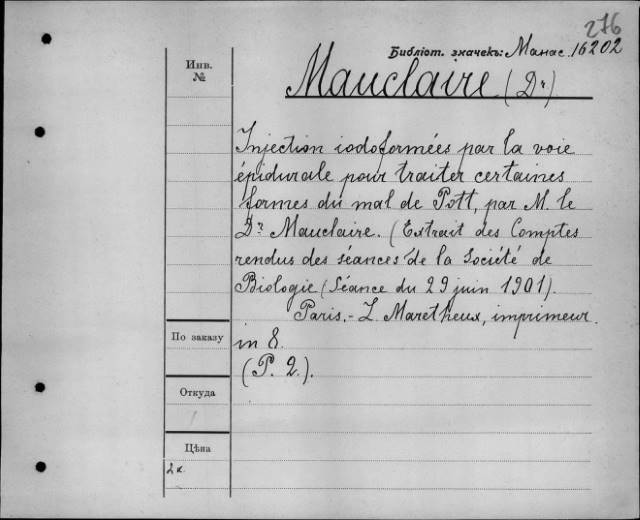 276
Библіот. значекъ: Манас. 16202
Инв.
№
Mauclaire (Dr)
Injection iodoformées par la voie
épidurale pour traiter certaines
formes du mal de Pott, par M. le
Dr Mauclaire. (Extrait des Comptes
rendus des séances de la Société de
Biologie (Séance du 29 juin 1901).
Paris.- L. Maretheux, imprimeur.
По заказу
in 8.
(P. 2.).
Откуда
Цѣна
2 к.